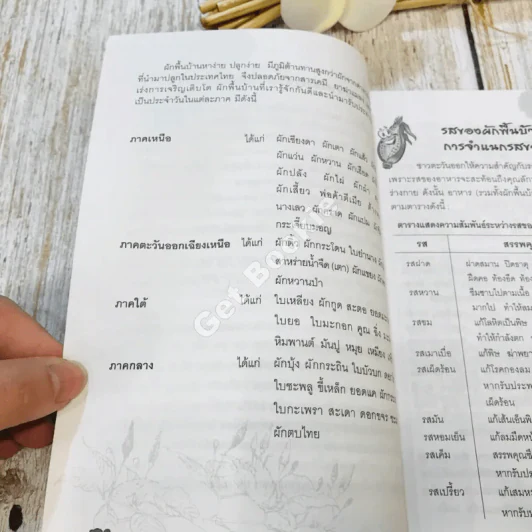 ผักพื้นบ้านหาง่าย ปลูกง่าย มีภูมิต้านทานสูงกว่าผักจาก
ที่นำมาปลูกในประเทศไทย จึงปลอดภัยจากสารเคมี ยาฆ่าแมลง
เร่งการเจริญเติบโต ผักพื้นบ้านที่เรารู้จักกันดีและนำมารับประ
เป็นประจำวันในแต่ละภาค มีดังนี้
ภาคเหนือ ได้แก่ ผักเชียงดา ผักเตา ผักเสี้ยว
ผักแว่น ผักหวาน ผักเฮือด
ผักปลัง ผักไผ่ ผักฮ้ว
ผักเสี้ยว พ่อค้าตีเมีย
นางเลว ผักแปม
ภาคตะวันออกเฉียงเหนือ ได้แก่ ผักติ้ว ผักกระโดน ใบย่านาง
สาหร่ายน้ำจืด (เตา) ผักแขยง
ผักหวานป่า
ภาคใต้ ได้แก่ ใบเหลียง ผักกูด สะตอ ยอด
ใบยอ ใบมะกอก คูณ
หิมพานต์ มันปู หมุย เหมียง
ภาคกลาง ได้แก่ ผักบุ้ง ผักกระถิน ใบบัวบก
ใบชะพลู ขี้เหล็ก ยอดแค ผัก
ใบกะเพรา สะเดา ดอกขจร
ผักตบไทย
Get Bookie
รสของผักพื้นบ้
การจำแนกรสข
ชาวตะวันออกให้ความสำคัญกับร
เพราะรสของอาหารจะสะท้อนถึงคุณลัก
ร่างกาย ดังนั้น อาหาร (รวมทั้งผักพื้นบ้
ตามตารางดังนี้
ตารางแสดงความสัมพันธ์ระหว่างรสของ
รส สรรพคุ
รสฝาด ฝาดสมาน ปิดธาตุ
ฝืดคอ ท้องอืด ท้อง
รสหวาน ซึมซาบไปตามเนื้อ
มากไป ทำให้ลม
รสขม แก้โลหิตเป็นพิษ
ทำให้กำลังตก
รสเมาเบื่อ แก้พิษ ฆ่าพยา
รสเผ็ดร้อน แก้โรคกองลม
หากรับประท
เผ็ดร้อน
รสมัน แก้เส้นเอ็นพิ
รสหอมเย็น แก้ลมมืดหน้
รสเค็ม สรรพคุณซึ
หากรับปร
รสเปรี้ยว แก้เสมห
หากรับ